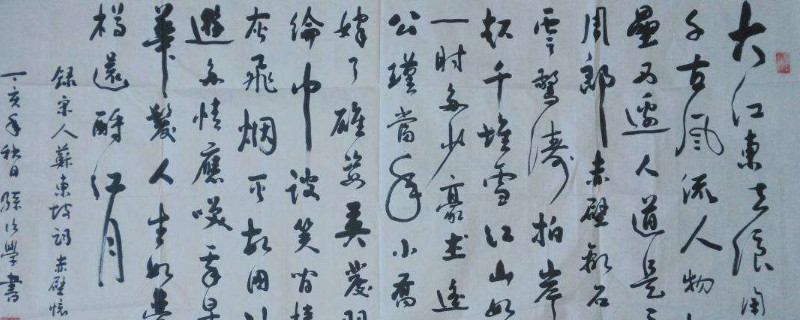 大江東去浪淘
千古風流人物
壘西邊人道是三
周郎赤壁亂石
雲驚濤拍岸
起千堆雪江山如
一時多少豪杰遥
公瑾當年小喬
嫁了雄姿英發羽
綸巾談笑間檣
灰飛烟滅故國神
遊多情應笑我早
華髮人生如夢
樽還酹江月
錄宋人蘇東坡詞赤壁懷
丁亥年秋日學書